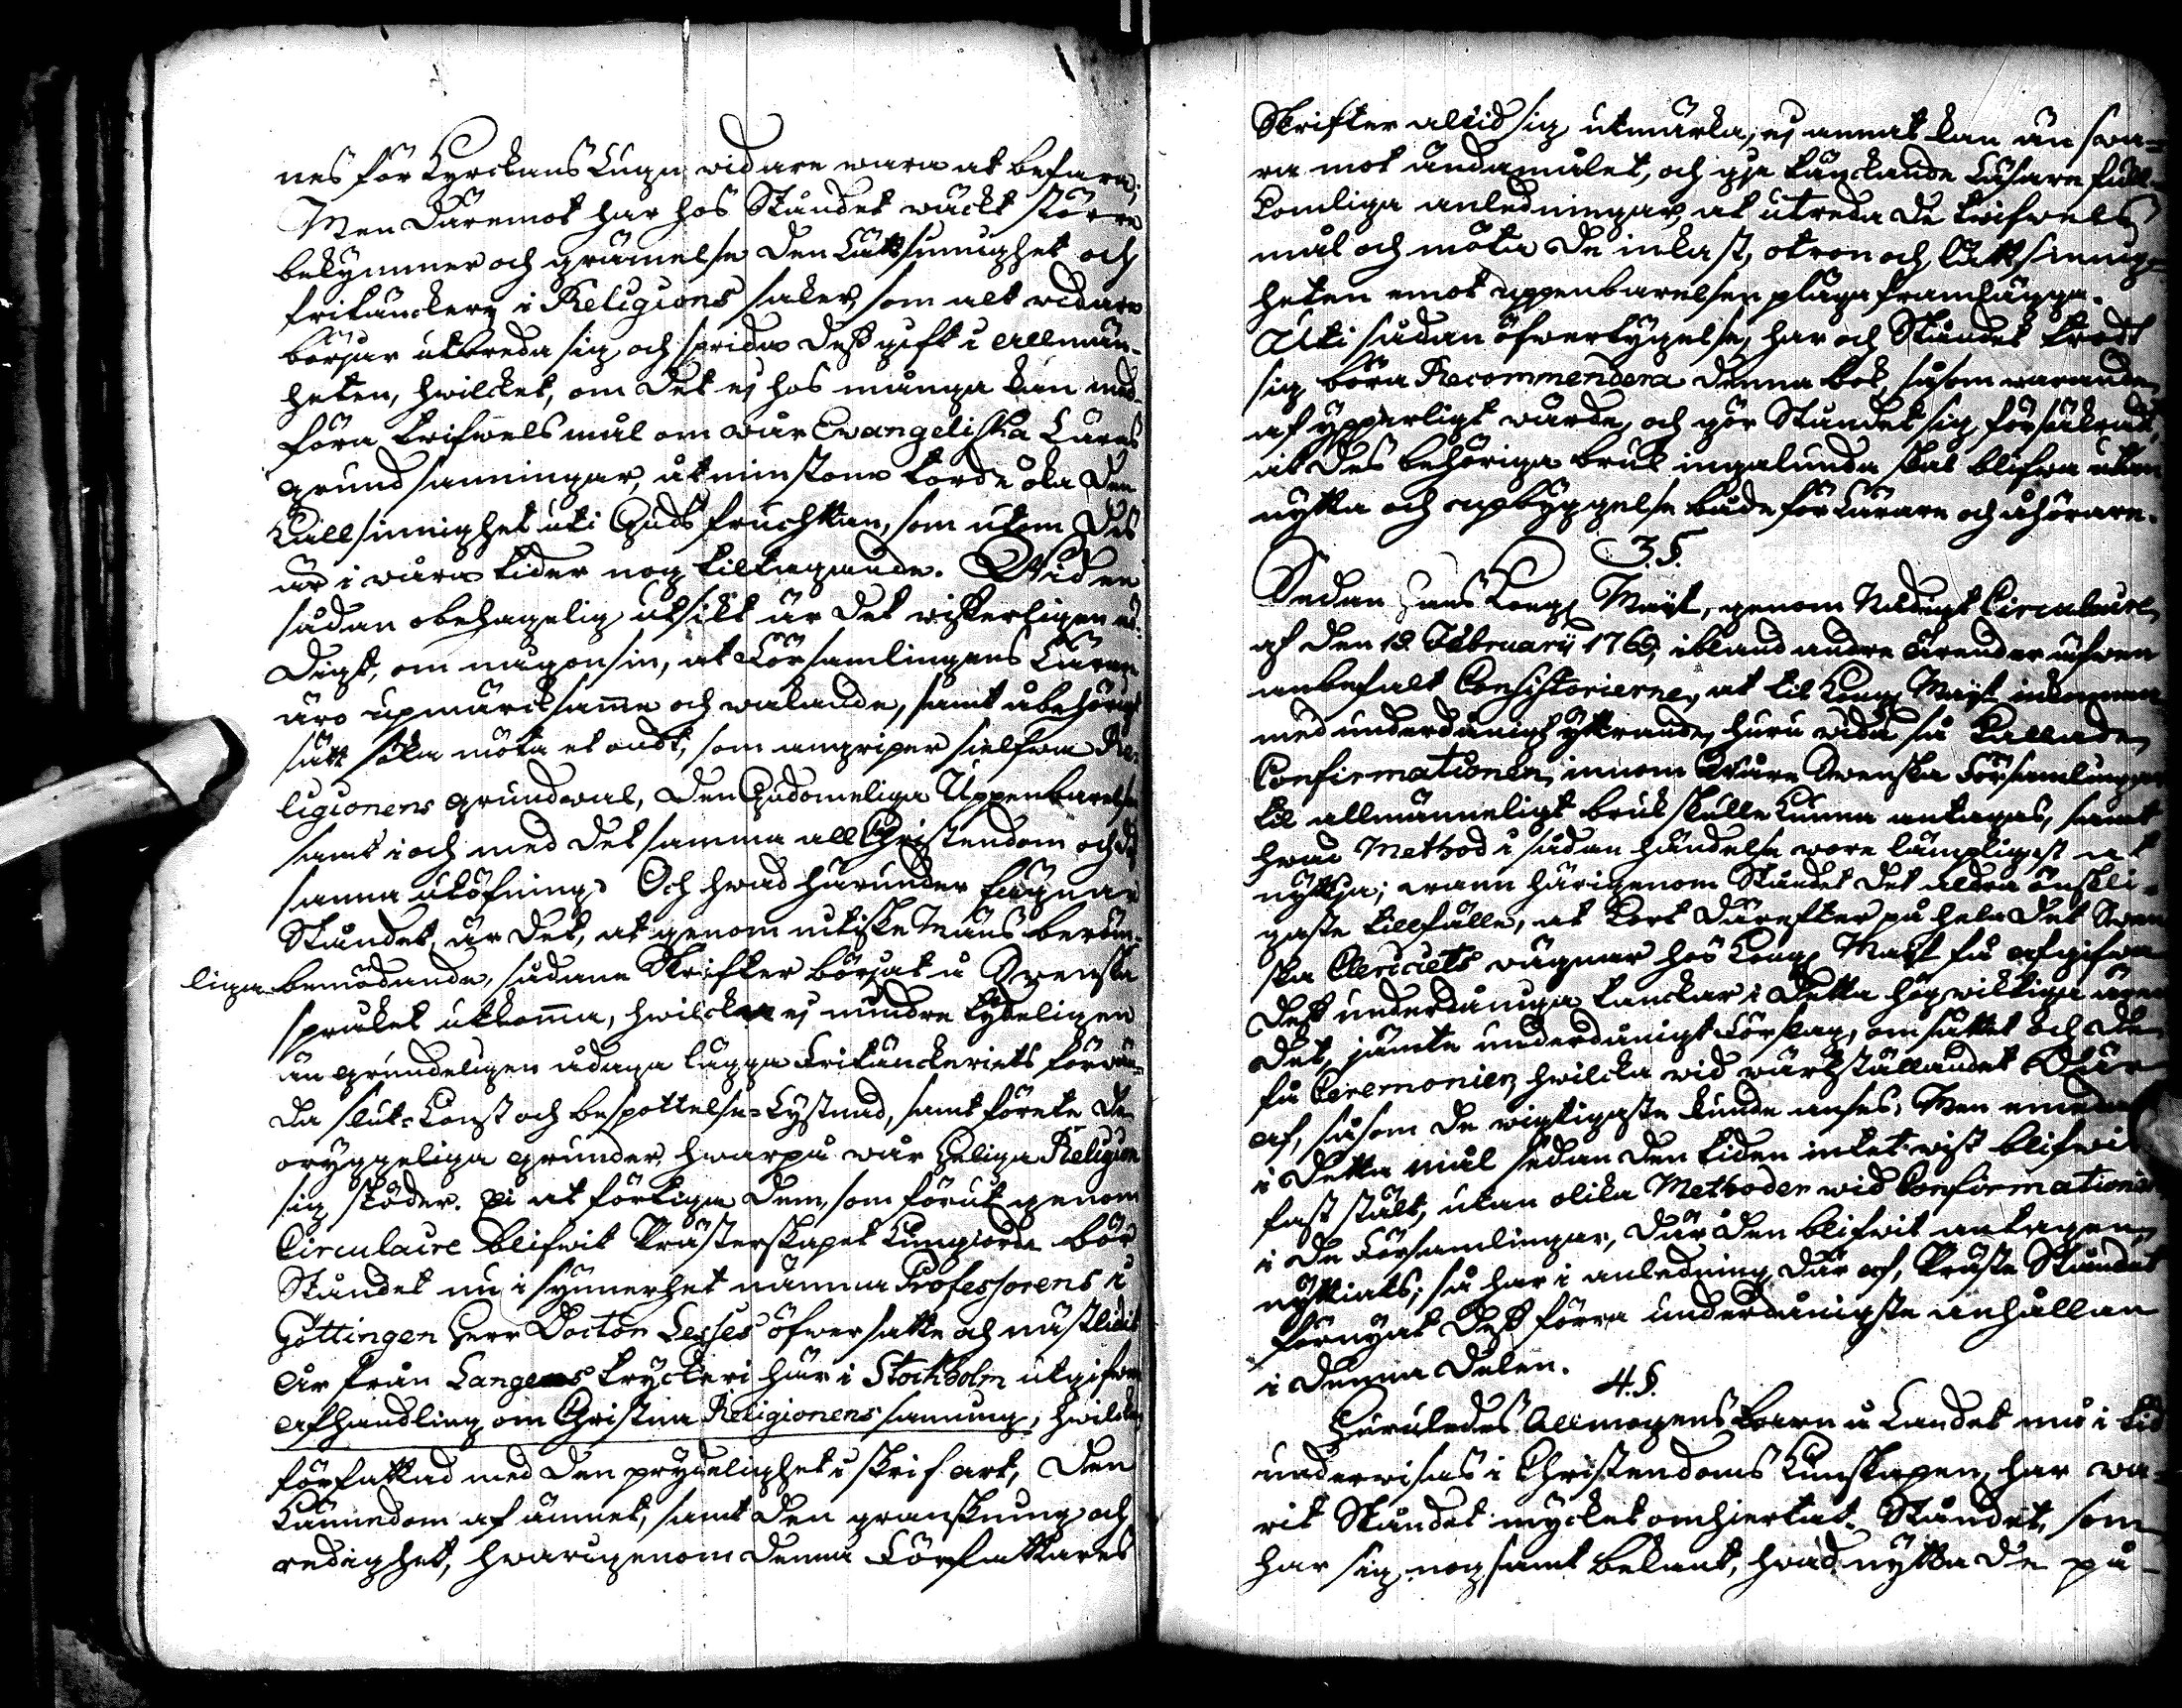 nes för Kyrckans Lugn vidare wara at befara;
Men däremot har hos Ståndet wäckt större
bekymmer och grämelse den Lättsinnighet och
fritänckery i Religions saker, som alt widare
börjar utbreda sig och sprida dess gift i allmän-
heten, hwilcket, om det ej hos många kan med-
föra twifwelsmål om wår Evangeliska Läras
grundsanningar, åtminstone torde öka den
Kallsinnighet uti Guds fruchtan, som utom des
är i wåra tider nog tilltagande. Wid en
sådan obehagelig utsikt är det wisserligen nö-
digt, om någonsin, at Församlingens Lärare
äro upmärcksamme och wakande, samt å behörigt
sätt söka möta et ondt, som angriper sielfwa Re-
ligionens grundwal, den Gudomeliga Uppenbarelsen
samt i och med detsamma all Christendom och des
sanna utöfning. Och hwad härunder fägnar
Ståndet, är det, at genom nitiske Mäns beröm-
liga bemödande, sådane Skrifter börjat å Swenska
språket utkomma, hwilcka ej mindre tydeligen
än grundeligen ådaga lägga Fritänckeriets förwän-
da slut-Konst och bespottelse-Lystnad, samt förete de
oryggeliga grunder, hwarpå wår heliga Religion
sig stöder. Ej at förtiga dem, som förut genom
Circulaire blifwit Prästerskapet kungjorde bör
Ståndet nu i synnerhet nämna Professorens i
Göttingen Herr Doctor Lesses öfwersatte och nästledit
År från Langens tryckeri här i Stockholm utgifwen
Afhandling om Christna Religionens sanning, hwilcken
författad med den prydelighet i skrifart, den
Kännedom af ämnet, samt den granskning och
redighet, hwarigenom denna Författares
Skrifter altid sig utmärka, ej annat kan än swa-
ra mot ändamålet, och gje tänckande Läsare full-
komliga anledningar, at utreda de twifwels
mål och möta de inkast, otron och lättsinnig-
heten emot uppenbarelsen pläga framlägga.
Uti sådan öfwertygelse, har och Ståndet trodt
sig böra Recommendera denna bok, såsom warande
af ypperligt wärde, och gör Ståndet sig försäkradt,
at des behöriga bruk ingalunda skal blifwa utan
nytta och upbyggelse både för Lärare och åhörare.
3. §.
Sedan Hans Kongl Mayt, genom Nådigt Circulaire
af den 18 Februarij 1769, ibland andre ärender äfwen
anbefalt Consistorierne, at til Kongl Mayt inkomma
med underdånigt yttrande, huru wida så kallade
Confirmationen, innom Wåre Swenska Församlingar
til allmänneligt bruk skulle kunna antagas, samt
hwad Method i sådan händelse wore lämpligast at
nyttja; wann härigenom Ståndet det aldra önskli-
gaste tillfälle, at kort därefter på hela det Swen
ska Clericiets wägnar hos Kongl Mayt få afgifwa
dess underdåniga tanckar i detta högwicktiga ären
det, jämte underdånigt Förslag, om sättet och de
få Ceremonier, hwilcka wid wärkställandet där
af, såsom de wigtigaste kunde anses; Men emedan
i detta mål sedan den tiden intet wist blifwit
fast stält, utan olika Methoder wid Confirmationen
i de Församlingar, där den blifwit antagen,
nyttjats; så har i anledning där af, Präste Ståndet
förnyat dess förra underdånigste anhållan
i denna delen.
4. §.
Huruledes Allmogens barn å Landet nu i tid
underwisas i Christendoms Kunskapen, har wa-
rit Ståndet mycket omhiertat. Ståndet, som
har sig nogsamt bekant, hwad nytta de på-